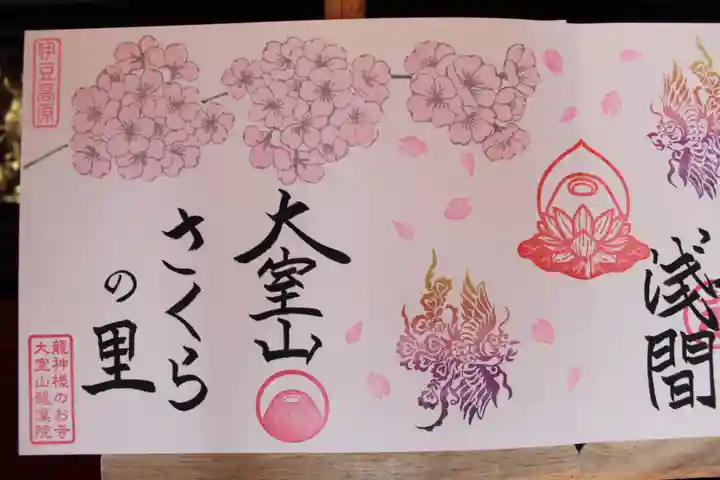 浅間
大室山
さくら
の里
伊豆高原
龍神様のお寺
大室山龍渓院